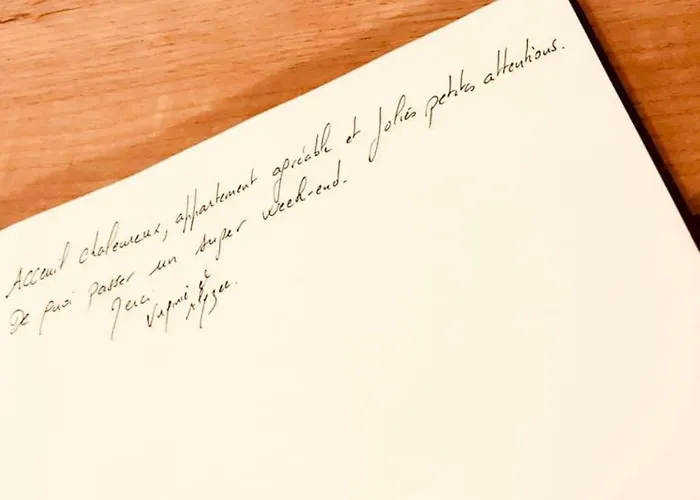 Acceuil chaleureux, appartement agréable et jolies petites attentions.
De quoi passer un super week-end.
Merci
et